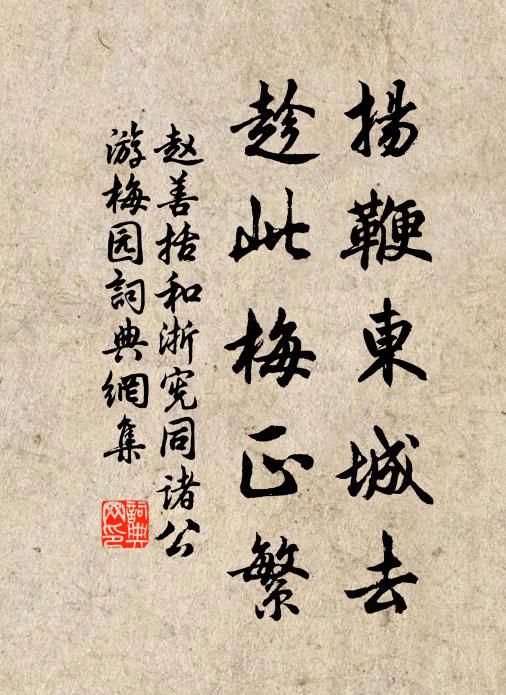 揚鞭東城去
趁此梅正繁
赵善括和浙宪同诸公
游梅园詞典網集
詞典
网印